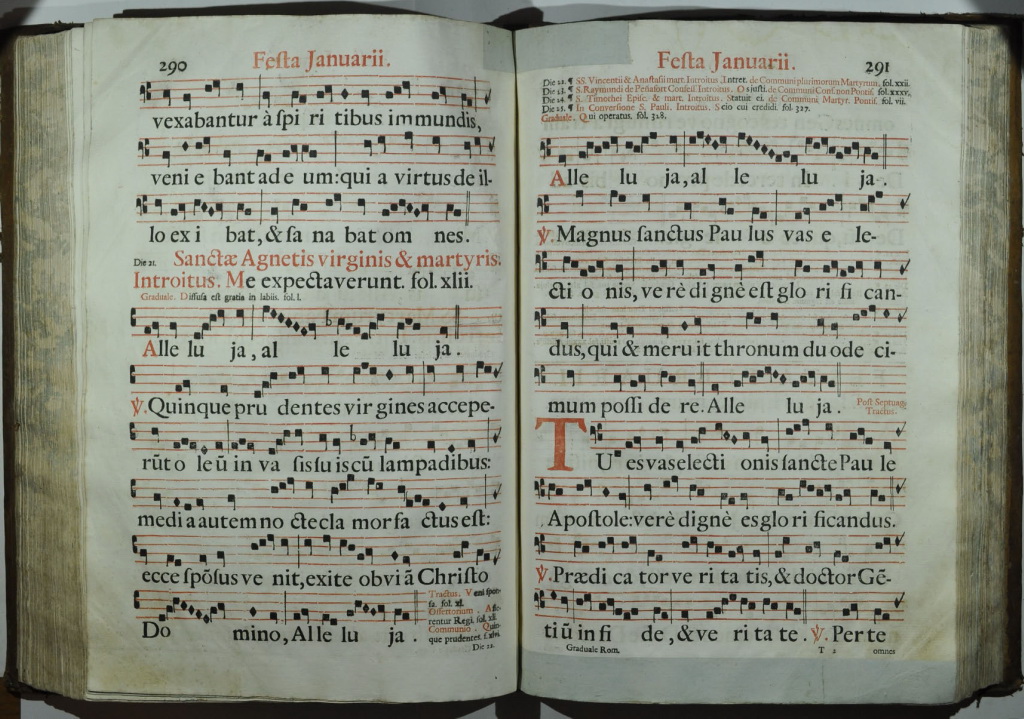 290 Festa Januarii.
vexabantur à spi ri tibus immundis,
veni e bant ad e um: qui a virtus de il-
lo ex i bat, & sa na bat om nes.
Die 21. Sanctæ Agnetis virginis & martyris.
Introitus. Me expectaverunt. fol. xlii.
Graduale. Diffusa est gratia in labiis. fol. l.
Alle lu ja, al le lu ja.
℣. Quinque pru dentes vir gines accepe-
rūt o leū in va sis su is cū lampadibus:
medi a autem no cte cla mor fa ctus est:
ecce spōsus ve nit, exite obvi ā Christo
Do mino, Alle lu ja.
Tractus. Veni spon-
sa. fol. xl.
Offertorium. Affe-
rentur Regi. fol. xli.
Communio. Quin-
que prudentes. f. xlvi.
Die 22.
Festa Januarii. 291
Die 22. ¶ SS. Vincentii & Anastasii mart. Introitus. Intret. de Communi plurimorum Martyrum. fol. xxii.
Die 23. ¶ S. Raymundi de Peñafort Confess. Introitus. Os justi. de Communi Conf. non Pontif. fol. xxxv.
Die 24. ¶ S. Timothei Episc. & mart. Introitus. Statuit ei. de Communi Martyr. Pontif. fol. vii.
Die 25. ¶ In Conversione S. Pauli. Introitus. Scio cui credidi. fol. 327.
Graduale. Qui operatus. fol. 328.
Alle lu ja, al le lu ja.
℣. Magnus sanctus Pau lus vas e le-
cti o nis, ve rè di gnè est glo ri fi can-
dus, qui & meru it thronum du ode ci-
mum possi de re. Alle lu ja. Post Septuag.
Tractus.
TU es vas electi onis sancte Pau le
Apostole: verè dignè es glo ri ficandus.
℣. Prædi ca tor ve ri ta tis, & doctor Gē-
ti ū in fi de, & ve ri ta te. ℣. Per te
Graduale Rom. T 2 omnes